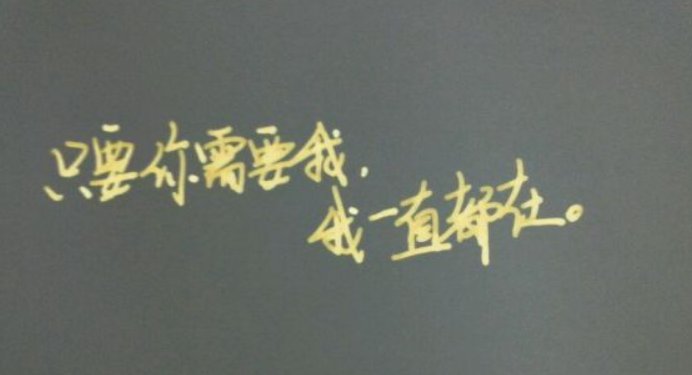 只要你需要我，
我一直都在。